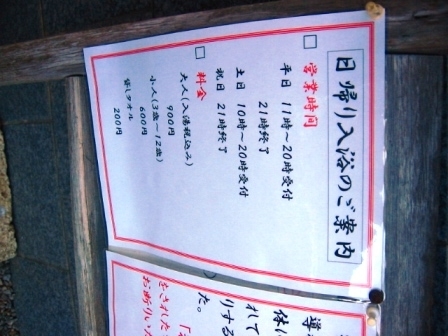 日帰り入浴のご案内
□ 営業時間
平日 11時〜20時受付
21時終了
土日 10時〜20時受付
祝日 21時終了
□ 料金
大人(入湯税込み)
900円
小人(3歳〜12歳)
600円
貸しタオル
200円
導
体に
れて
りする
た。
をされた
お断りいた